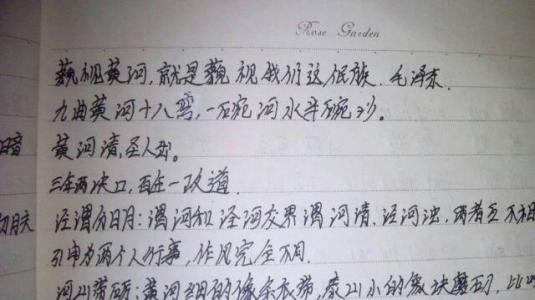 Rose Garden
藐视黄河,就是藐视我们这个民族.毛泽东.
九曲黄河十八弯,一碗河水半碗沙。
黄河清,圣人出。
三年两决口,百年一改道.
泾渭分明:渭河和泾河交界渭河清.泾河浊,两者互不相
引申为两个人行事,作风完全不同.
河山带砺:黄河细的像条衣带,泰山小的像块磨刀,比